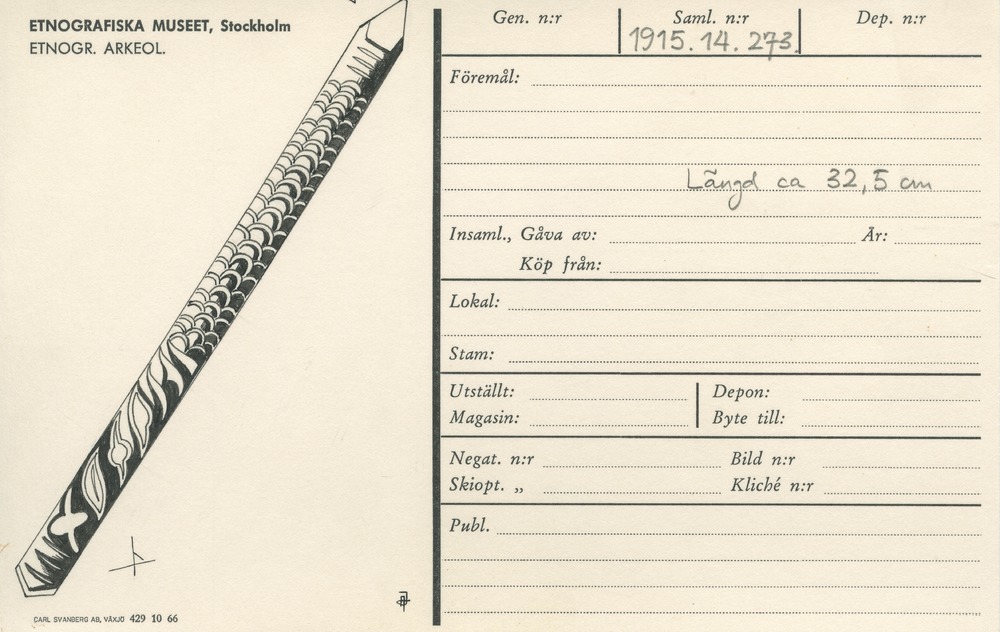 ETNOGRAFISKA MUSEET, Stockholm
ETNOGR. ARKEOL.
CARL SVANBERG AB, VÄXJÖ 429 10 66
Gen. n:r
Saml. n:r
Dep. n:r
1915. 14. 273.
Föremål:
Längd ca 32,5 cm
Insaml., Gåva av: År:
Köp från:
Lokal:
Stam:
Utställt: Depon:
Magasin: Byte till:
Negat. n:r Bild n:r
Skiopt. „ Kliché n:r
Publ.